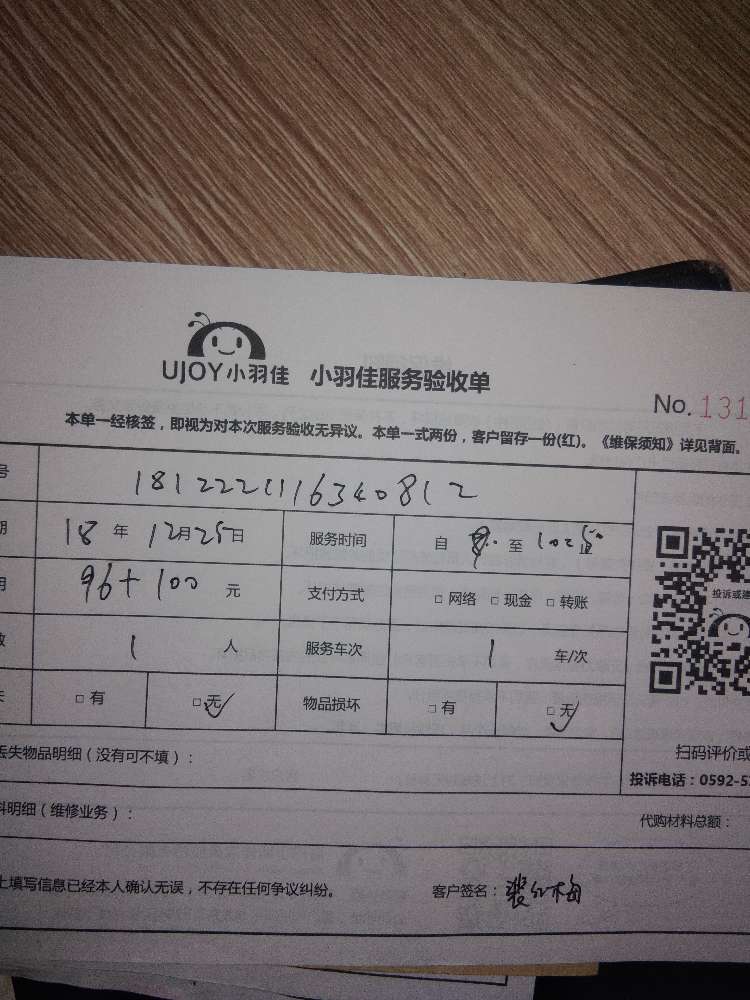 UJOY小羽佳 小羽佳服务验收单
No.131
本单一经核签，即视为对本次服务验收无异议。本单一式两份，客户留存一份(红)。《维保须知》详见背面。
号 1812221116340812
期 18年12月25日 服务时间 自 至
用 96+100元 支付方式 □网络 □现金 □转账
数 1人 服务车次 1车/次
失 □有 □无 物品损坏 □有 □无
投诉或建
丢失物品明细（没有可不填）：
扫码评价或
投诉电话：0592-5
料明细（维修业务）：
代购材料总额：
上填写信息已经本人确认无误，不存在任何争议纠纷。
客户签名：裴红梅